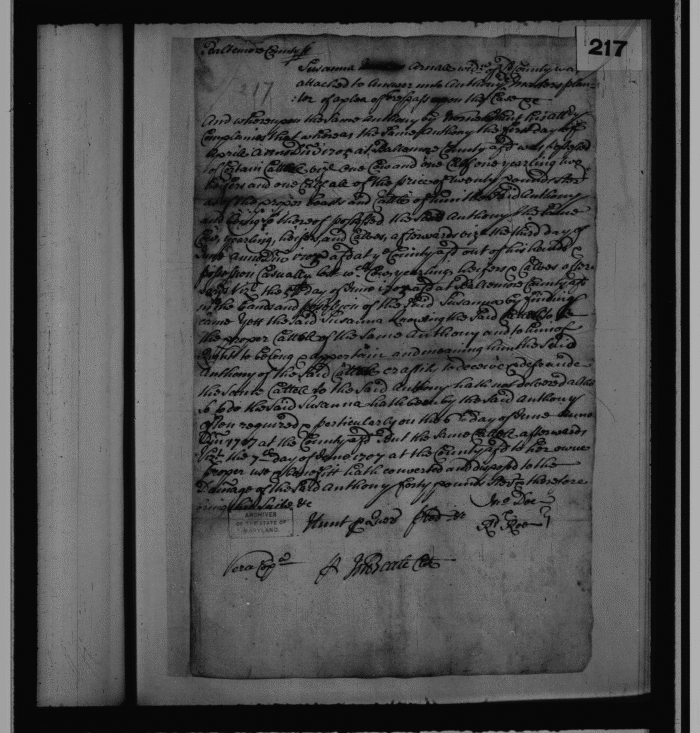 217
Baltemore County ss
Susanna Carnale wid: of sd County was
attached to answer unto Anthony planter
of a plea of trespass upon the Case &c
217
And whereupon the Same Anthony by Hunt his atty
Complaines that whereas the Same Anthony the first day of
Aprill anno Dni 1705 at Baltemore County afd was possessed
of Certain Cattell vizt one Cow and one Calf one yearling two
heifers and one Calf all of the price of twenty pounds ster
as of the proper beasts and Cattle of him the said Anthony
and being so thereof possessed the Anthony the same
Cow, yearling, heifers, and Calves, afterwards vizt the third day of
anno Dni afd at County afd out of his hands &
possession Casually lost wch Cow yearling heifers & Calves after
wards vizt the day of June afd at Baltemore County afd
in the hands and possession of the said Susanna by finding
came Yett the said Susanna knowing the said Cattell to be
the proper Cattell of the same Anthony and to him of
Right to belong & appertain and meaning him the said
Anthony of the said Cattell craftily to deceive & defraude
the same Cattell to the said Anthony hath not delivered altho
so to do the said Susanna hath been by the said Anthony
often required & particularly on the 6th day of June anno
Dni 1707 at the County afd But the same Cattell afterwards
vizt the 7th day of June 1707 at the County afd to her owne
proper use & benefitt hath converted and disposed to the
Damage of the said Anthony forty pounds ster & therefore
brings his suite &c
Hunt p Quer pled &c
Jno Doe
Rd Roe
ARCHIVES
OF THE STATE OF
MARYLAND.
Vera Cop